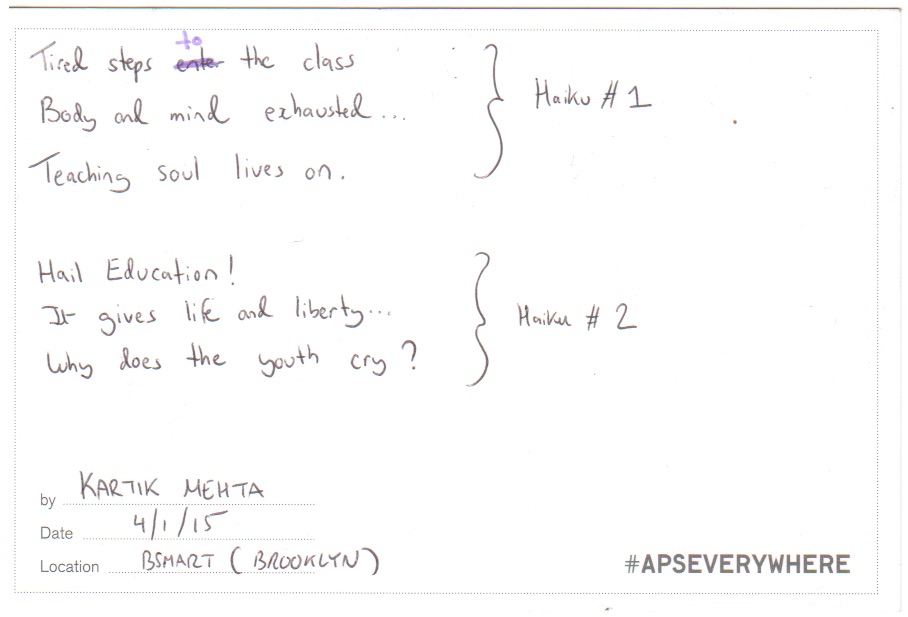 Tired steps to the class
Body and mind exhausted...
Teaching soul lives on.
Haiku # 1
Hail Education!
It gives life and liberty...
Why does the youth cry?
Haiku # 2
by KARTIK MEHTA
Date 4/1/15
Location BSMART (BROOKLYN)
#APSEVERYWHERE